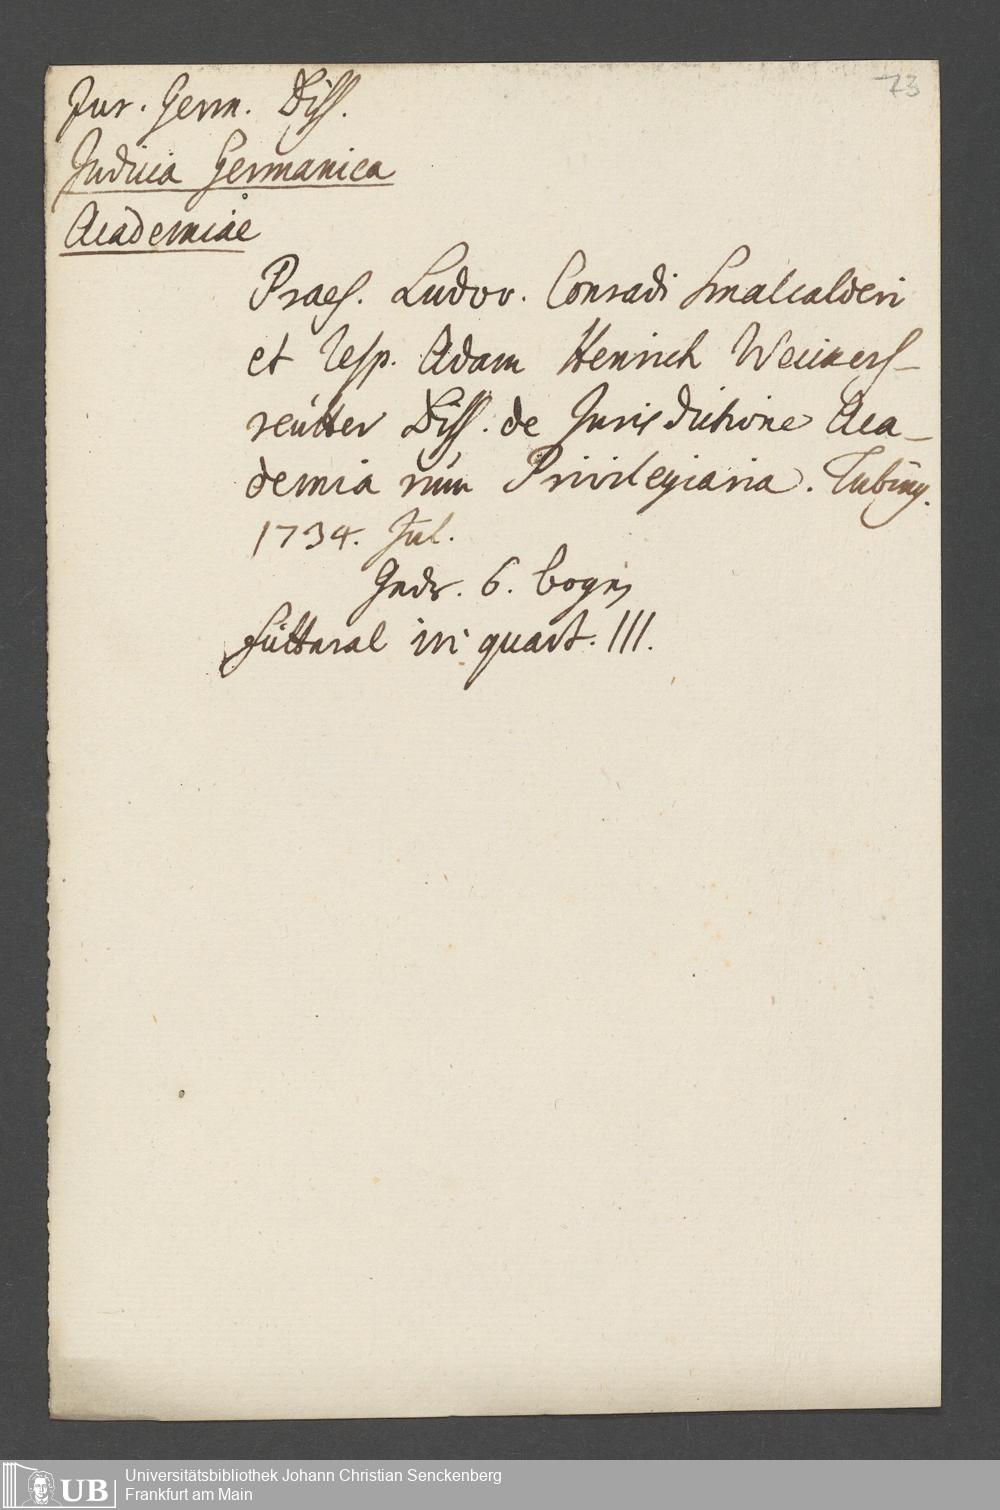 73
Jur. Germ. Diss.
Judicia Germanica
Academiae
Praes. Ludov. Conradi Smalcalderi
et Resp. Adam Henrich Weickers-
reutter Diss. de Jurisdictione Aca-
demia rum Privilegiaria. Tubing.
1734. Jul.
6. bogen
Futtaral in quart. III.
UB
Universitätsbibliothek Johann Christian Senckenberg
Frankfurt am Main